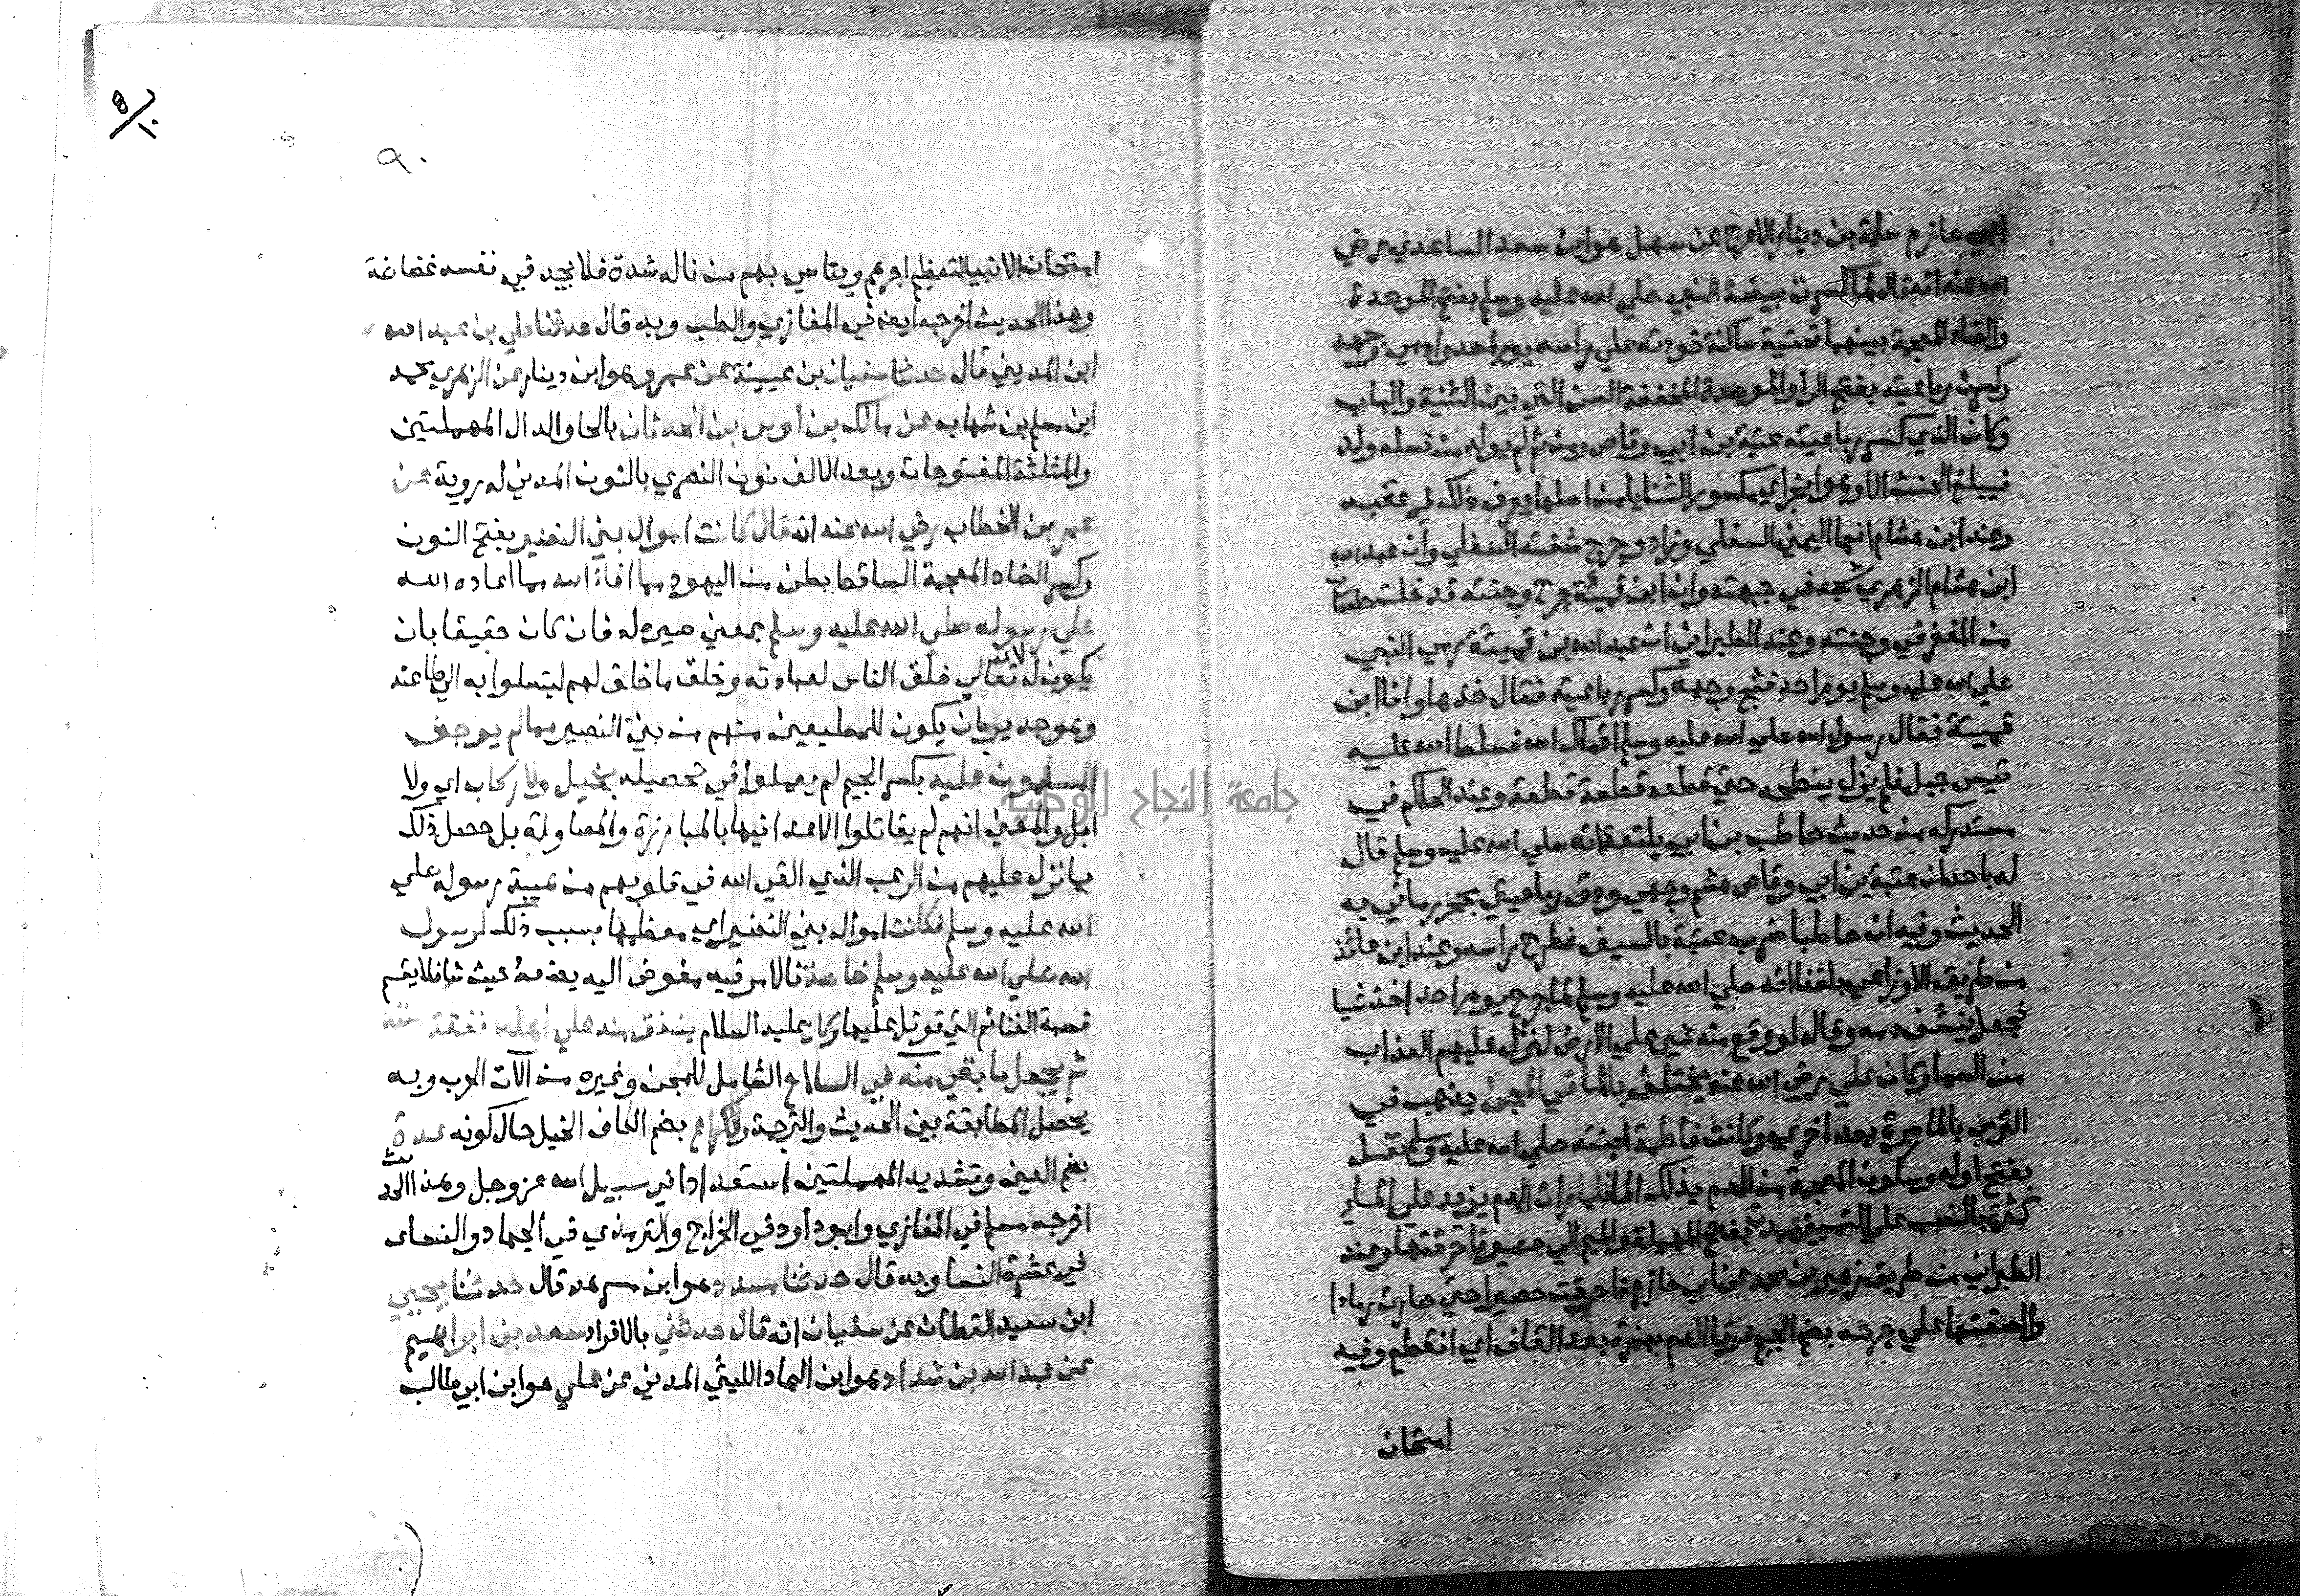 ابي حازم سلمة بن دينار الاعرج عن سهل هو ابن سعد الساعدي رضي
الله عنه انه قال لما كسرت بيضة النبي صلي الله عليه وسلم بفتح الموحدة
والضاد المعجمة بينهما تحتية ساكنة خودته علي راسه يوم احد وادمي وجهه
وكسرت رباعيته بفتح الرا والموحدة المخففة السن التي بين الثنية والناب
وكان الذي كسر رباعيته عتبة بن ابي وقاص ومن ثم لم يولد من نسله ولد
فيبلغ الحنث الا وهو ابخر اي مكسور الثنايا من اصلها يعرف ذلك في عقبه
وعند ابن هشام انها اليمني السفلي وزاد وجرح شفته السفلي وان عبد الله
ابن هشام الزهري شجه في جبهته وان ابن قميئة جرح وجنته فدخلت حلقتان
من المغفر في وجنته وعند الطبراني ان عبد الله بن قميئة رمي النبي
صلي الله عليه وسلم يوم احد فشج وجهه وكسر رباعيته فقال خذها وانا ابن
قميئة فقال رسول الله صلي الله عليه وسلم اقماك الله فسلط الله عليه
تيس جبل فلم يزل ينطحه حتي قطعه قطعة قطعة وعند الحاكم في
مستدركه من حديث حاطب بن ابي بلتعة انه صلي الله عليه وسلم قال
له باحد ان عتبة بن ابي وقاص هشم وجهي ودق رباعيتي بحجر رماني به
الحديث وفيه ان حاطبا ضرب عتبة بالسيف فطرح راسه وعند ابن عائذ
من طريق الاوزاعي بلغنا انه صلي الله عليه وسلم لما جرح يوم احد اخذ شيا
فجعل ينشف دمه وقال لو وقع منه شي علي الارض لنزل عليهم العذاب
من السما وكان علي رضي الله عنه يختلف بالما في المجن يذهب في
الترس بالما مرة بعد اخري وكانت فاطمة ابنته صلي الله عليه وسلم تغسل
بفتح اوله وسكون المعجمة من الدم بذلك الما فلما رات الدم يزيد علي الما
كثرة بالنصب علي التمييز عمدت بفتح المهملة والميم الي حصير فاحرقتها وعند
الطبراني من طريق زهير بن محمد عن ابي حازم فاحرقت حصيرا حتي صارت رمادا
والصقتها علي جرحه بضم الجيم فرقا الدم بهمزة بعد القاف اي انقطع وفيه
امتحان
٩٠
امتحان الانبيا لتعظيم اجرهم ويتاسي بهم من ناله شدة فلا يجد في نفسه غضاضة
وهذا الحديث اخرجه ايضا في المغازي والطب وبه قال حدثنا علي بن عبد الله
ابن المديني قال حدثنا سفيان بن عيينة عن عمرو هو ابن دينار عن الزهري محمد
ابن مسلم بن شهاب عن مالك بن اوس بن الحدثان بالحا والدال المهملتين
والمثلثة المفتوحات وبعد الالف نون النصري بالنون المدني له روية عن
عمر بن الخطاب رضي الله عنه انه قال كانت اموال بني النضير بفتح النون
وكسر الضاد المعجمة الساقطة بطن من اليهود مما افاء الله مما اعاده الله
علي رسوله صلي الله عليه وسلم بمعني صيره له فان كان حقيقا بان
يكون له لانه تعالي خلق الناس لعبادته وخلق ما خلق لهم ليتوسلوا به الي طاعته
وهو جدير بان يكون للمطيعين منهم من بني النضير مما لم يوجف
المسلمون عليه بكسر الجيم لم يعملوا في تحصيله بخيل ولا ركاب اي ولا
ابل والمعني انهم لم يقاتلوا الاعدا فيها بالمبارزة والمصاولة بل حصل ذلك
بما نزل عليهم من الرعب الذي القي الله في قلوبهم من هيبة رسوله صلي
الله عليه وسلم فكانت اموال بني النضير اي معظمها بسبب ذلك لرسول
الله صلي الله عليه وسلم خاصة فالامر فيه مفوض اليه يضعه حيث شا فلا يقسم
قسمة الغنائم التي قوتل عليها وكان عليه السلام ينفق منه علي اهله نفقة سنته
ثم يجعل ما بقي منه في السلاح الشامل للمجن وغيره من الات الحرب وبه
يحصل المطابقة بين الحديث والترجمة والكراع بضم الكاف الخيل حال كونه عدة
بضم العين وتشديد المهملتين استعدادا في سبيل الله عز وجل وهذا الحديث
اخرجه مسلم في المغازي وابو داود في الخراج والترمذي في الجهاد والنساي
في عشرة النسا وبه قال حدثنا مسدد هو ابن مسرهد قال حدثنا يحيي
ابن سعيد القطان عن سفيان انه قال حدثني بالافراد سعد بن ابراهيم
عن عبد الله بن شداد هو ابن الهاد الليثي المدني عن علي هو ابن ابي طالب
جامعة النجاح الوطنية